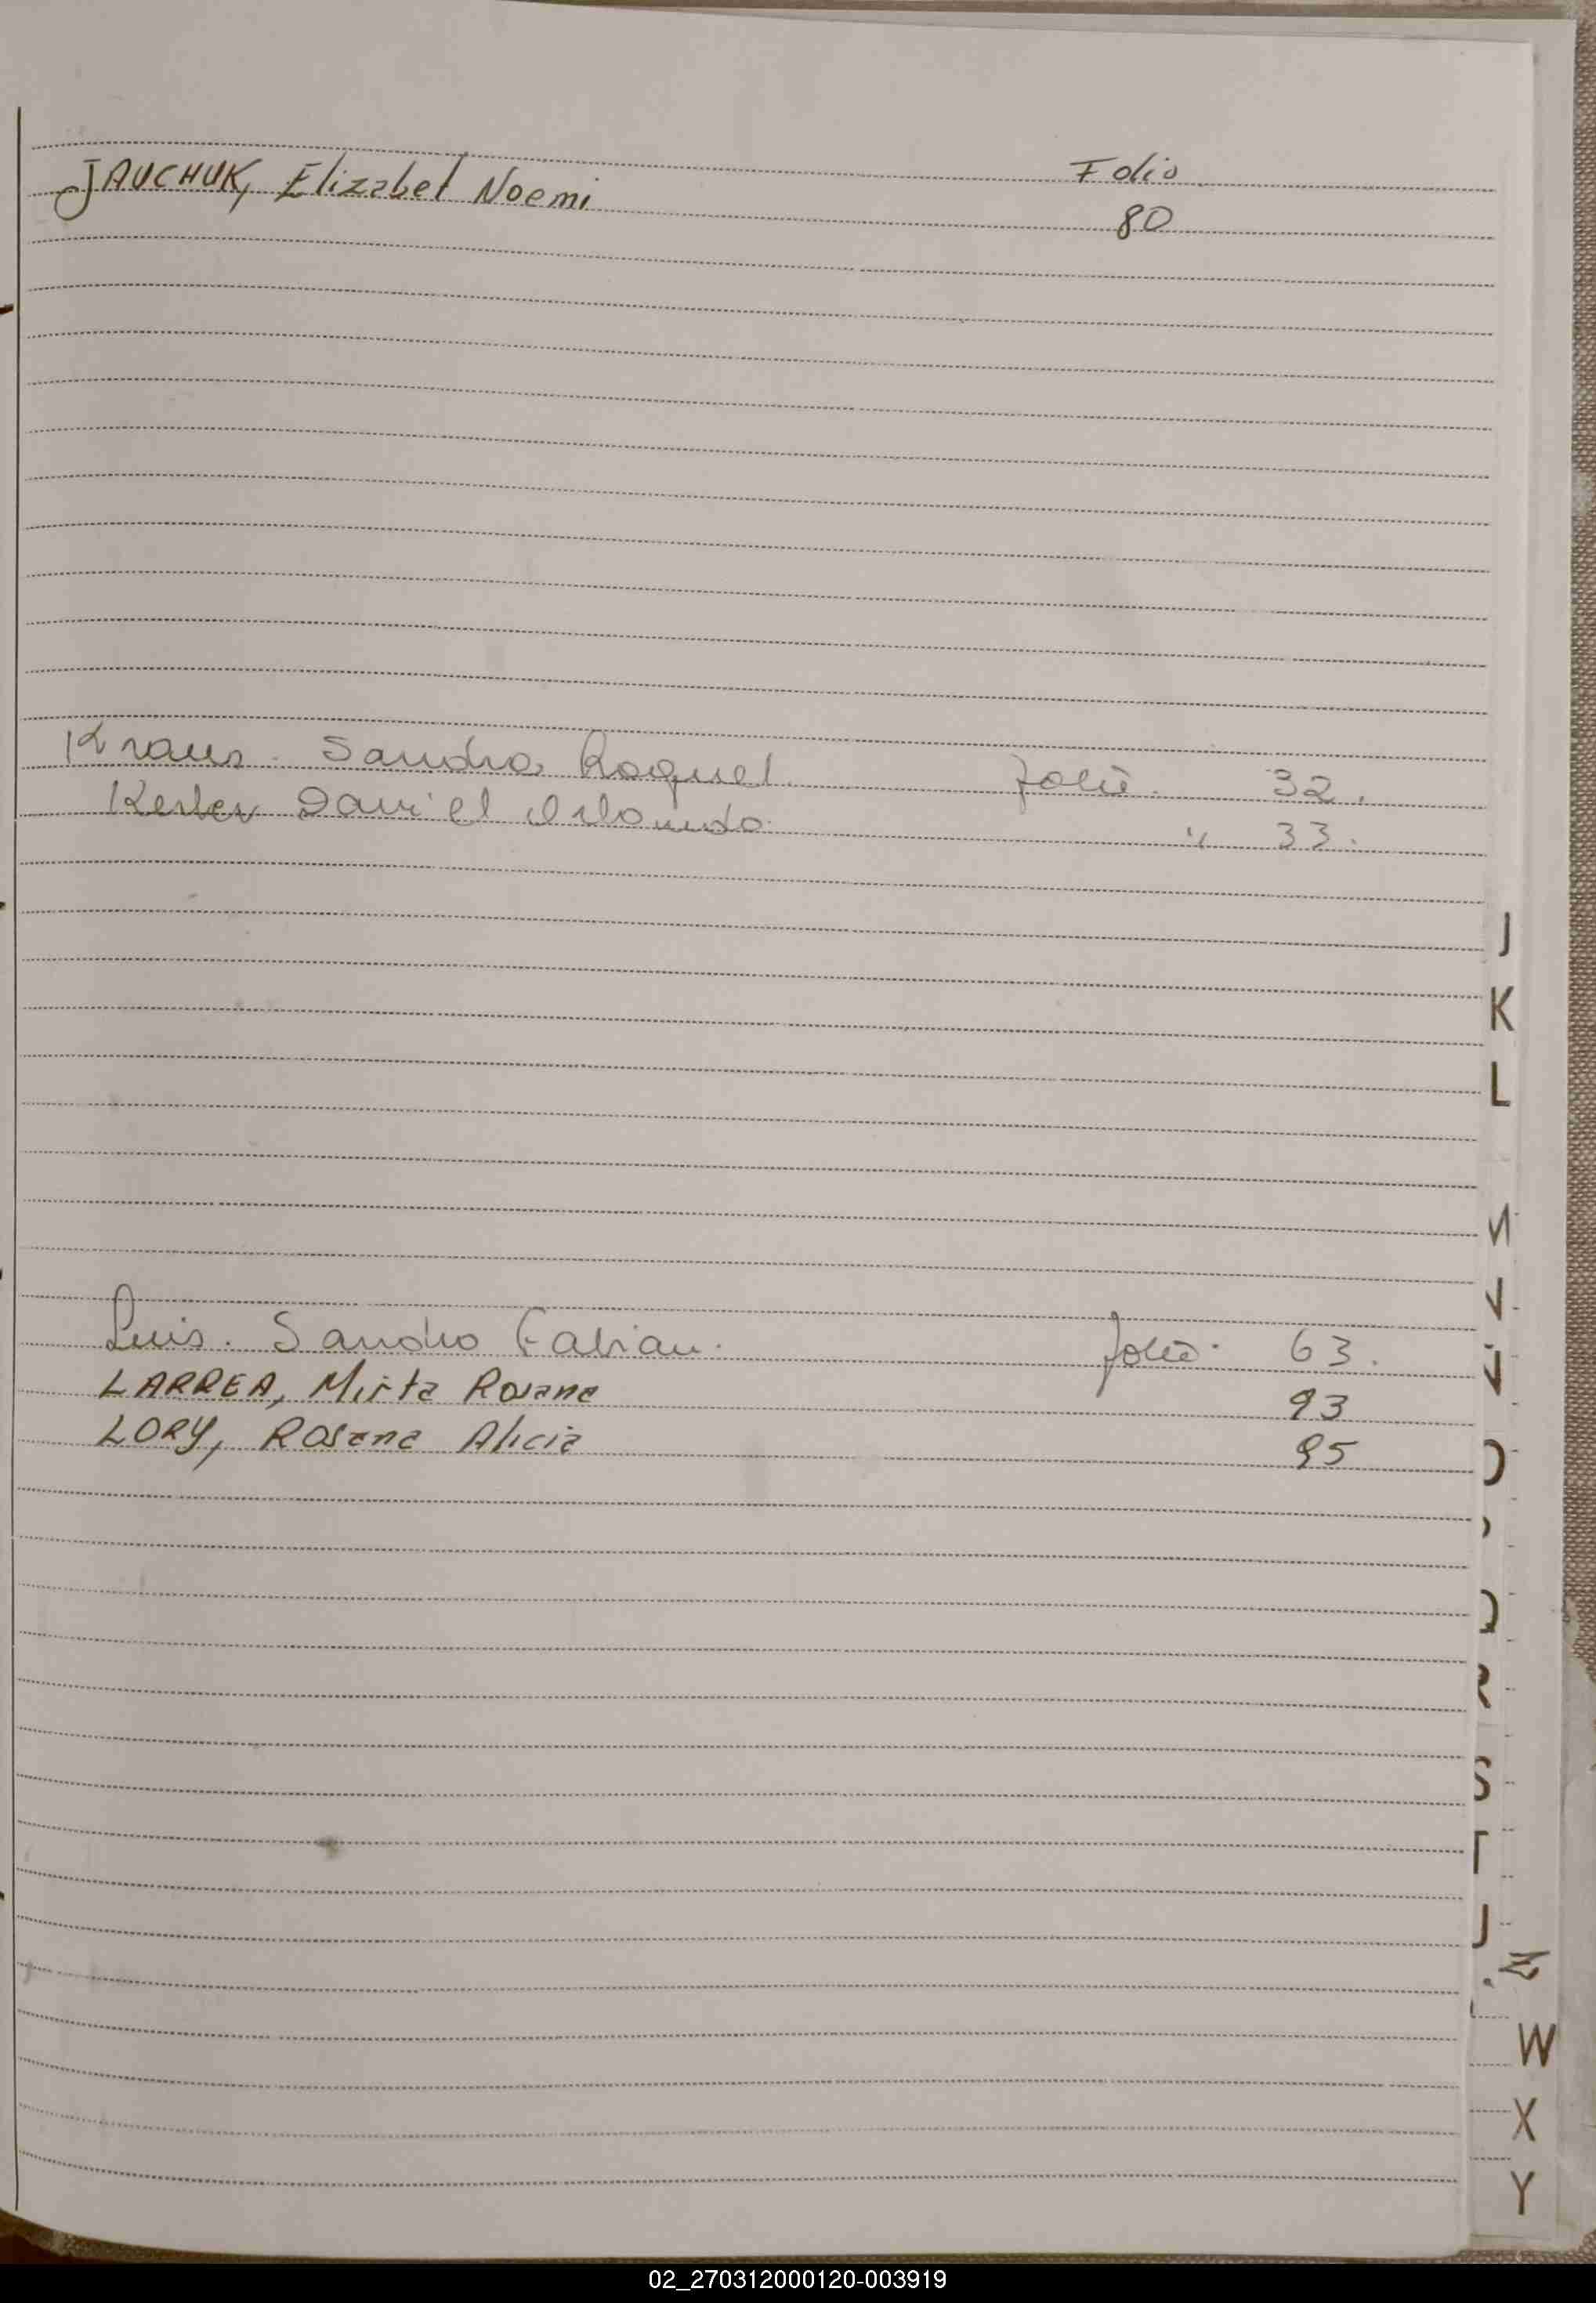 Folio
JAUCHUK, Elizabet Noemi 80
Kraus. Sandra Raquel. folio. 32.
Daniel Orlando. " 33.
J
K
L
Luis. Sandro Fabian. folio. 63.
LARREA, Mirta Rosana 93
LORY, Rosana Alicia 95
Q
R
S
T
Z
W
X
Y
02_270312000120-003919